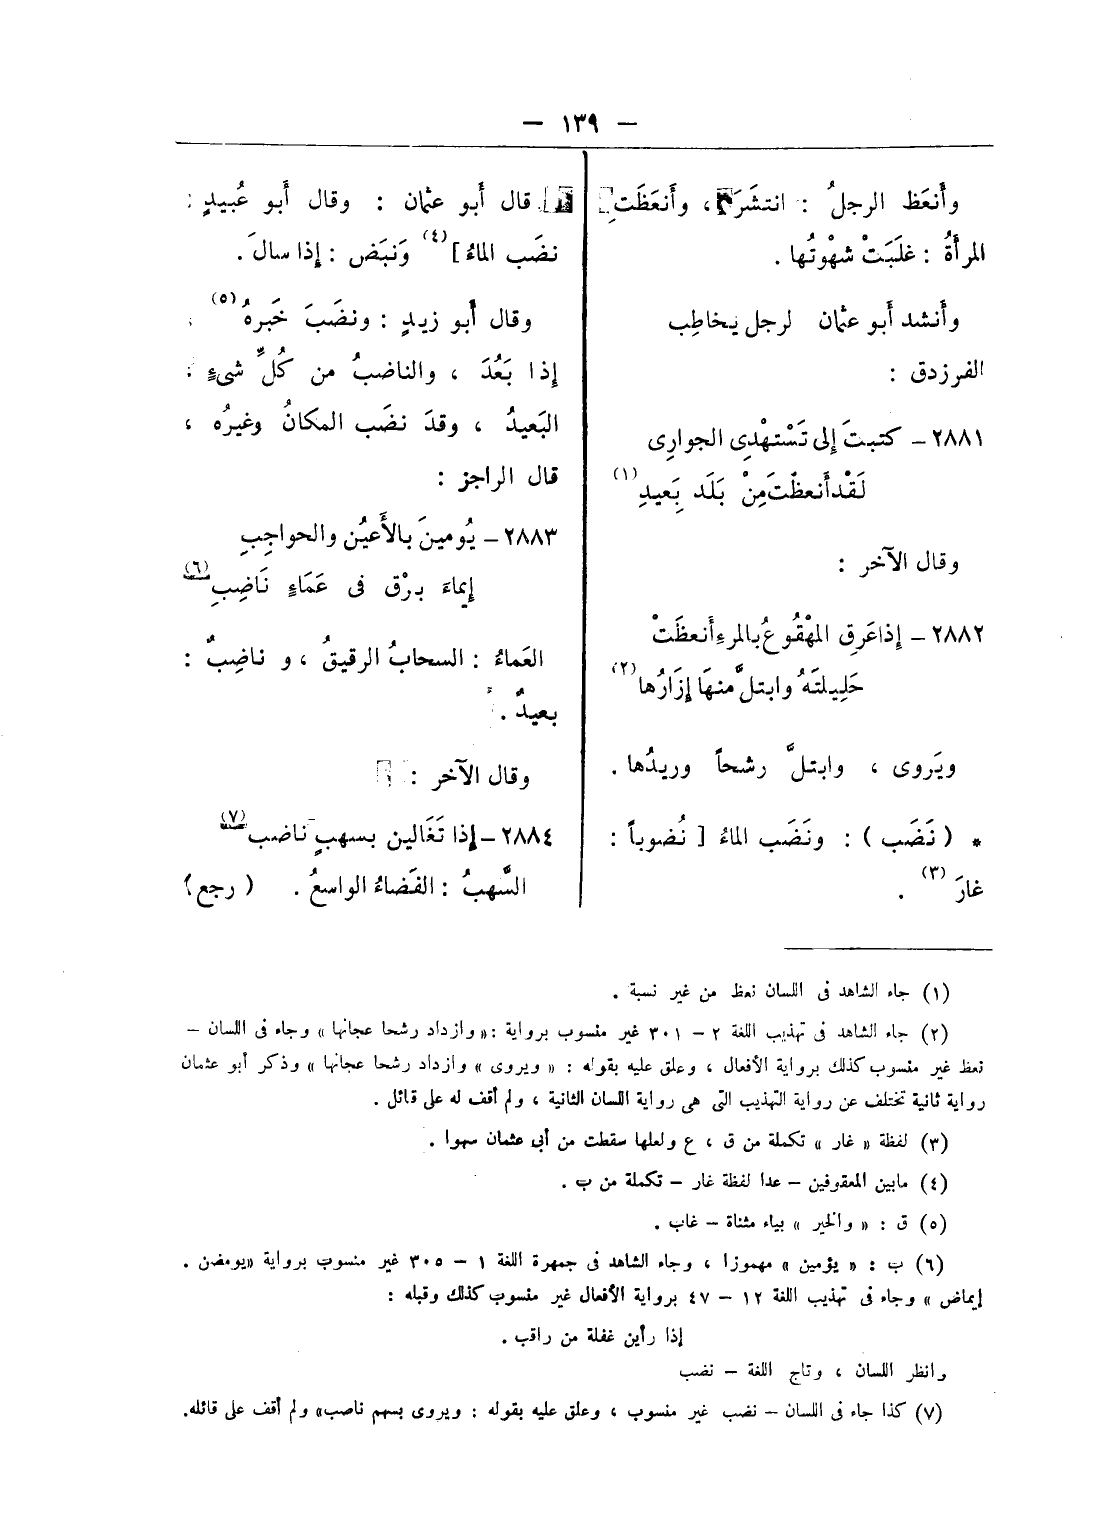 — ١٣٩ —
وأَنعَظ الرجلُ : انتشَرَ ، وأَنعَظَت
المرأةُ : غلَبَتْ شهْوتُها .
وأَنشد أَبو عثمان لرجل يخاطِب
الفرزدق :
٢٨٨١ – كتبتَ إِلى تَسْتهْدِى الجوارِى
لَقْد أَنعظْتَ مِنْ بَلَد بَعيدِ (١)
وقال الآخر :
٢٨٨٢ – إِذا عَرِق المهْقُوعُ بالمرءِ أَنعظَتْ
حَلِيلتَهُ وابتلَّ منهَا إِزَارُها (٢)
ويَروى ، وابتلَّ رشحاً وريدُها .
* ( نَضَب ) : ونَضَب الماءُ [ نُضوباً :
غارَ (٣) .
قال أَبو عثمان : وقال أَبو عُبيدٍ :
نضَب الماءُ ] (٤) وَنبَض : إِذا سالَ .
وقال أَبو زيدٍ : ونضَبَ خَبرهُ (٥)
إِذا بَعُدَ ، والناضبُ من كُلِّ شىءٍ :
البَعيدُ ، وقدَ نضَب المكانُ وغيرُه ،
قال الراجز :
٢٨٨٣ – يُومينَ بالأَعيُن والحواجِبِ
إِيماءَ برْق فى عَمَاءٍ نَاضِبِ (٦)
العَماءُ : السحابُ الرقيقُ ، و ناضِبٌ :
بعيدٌ .
وقال الآخر :
٢٨٨٤ – إِذا تَغَالين بسهبٍ ناضب (٧)
السَّهبُ : الفَضاءُ الواسعُ . ( رجع )
(١) جاء الشاهد فى اللسان نعظ من غير نسبة .
(٢) جاء الشاهد فى تهذيب اللغة ٢ – ٣٠١ غير منسوب برواية : « وازداد رشحا عجانها » وجاء فى اللسان –
نعظ غير منسوب كذلك برواية الأفعال ، وعلق عليه بقوله : « ويروى » وازداد رشحا عجانها » وذكر أبو عثمان
رواية ثانية تختلف عن رواية التهذيب التى هى رواية اللسان الثانية ، ولم أقف له على قائل .
(٣) لفظة « غار » تكملة من ق ، ع ولعلها سقطت من أبى عثمان سهوا .
(٤) مابين المعقوفين – عدا لفظة غار – تكملة من ب .
(٥) ق : « والخير » بياء مثناة – غاب .
(٦) ب : « يؤمين » مهموزا ، وجاء الشاهد فى جمهرة اللغة ١ – ٣٠٥ غير منسوب برواية «يومضن .
إيماض » وجاء فى تهذيب اللغة ١٢ – ٤٧ برواية الأفعال غير منسوب كذلك وقبله :
إذا رأين غفلة من راقب .
وانظر اللسان ، وتاج اللغة – نضب
(٧) كذا جاء فى اللسان – نضب غير منسوب ، وعلق عليه بقوله : ويروى بسهم ناصب» ولم أقف على قائله.